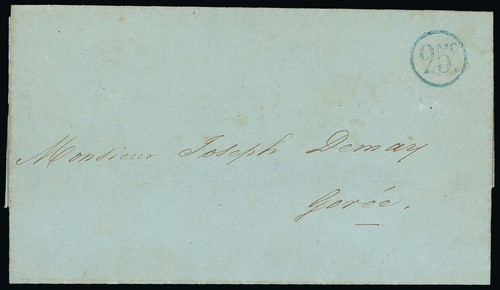 25
Monsieur Joseph Demay
Gorée.